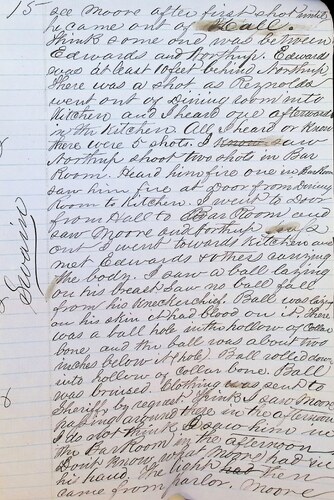 15
see Moore after first shot until
he came out of Hall.
think some one was between
Edwards and Northup. Edwards
was at least 10 feet behind Northup
There was a shot, as Reynolds
went out of Dining room into
Kitchen and I heard one afterwards
in the Kitchen. All I heard or Know
there were 5 shots. I saw
Northup shoot two shots in Bar
Room. Heard him fire one in Bar Room
saw him fire at Door from Dining
room to Kitchen. I went to Door
from Hall to Bar Room and
saw Moore and Northup
out I went towards Kitchen and
met Edwards & others carrying
the body. I saw a ball laying
on his breast saw no ball fall
from his Neckerchief. Ball was laying
on his skin it had blood on it. There
was a ball hole in the hollow of Collar
bone, and the ball was about two
inches below it hole. Ball rolled down
into hollow of collar bone. Ball
was bruised. Clothing was sent to
Sheriff by request. think I saw Moore
passing around there in the afternoon
I do not think I saw him in
the Bar Room in the afternoon
Dont Know what Moore had in
his hand, The light had then
came from parlor. Moore